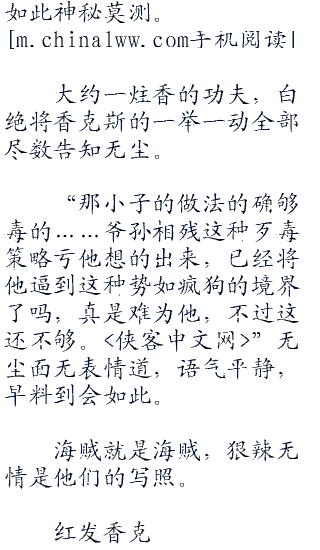 如此神秘莫测。
[m.chinalww.com手机阅读|
大约一炷香的功夫，白
绝将香克斯的一举一动全部
尽数告知无尘。
“那小子的做法的确够
毒的……爷孙相残这种歹毒
策略亏他想的出来，已经将
他逼到这种势如疯狗的境界
了吗，真是难为他，不过这
还不够。<侠客中文网>”无
尘面无表情道，语气平静，
早料到会如此。
海贼就是海贼，狠辣无
情是他们的写照。
红发香克